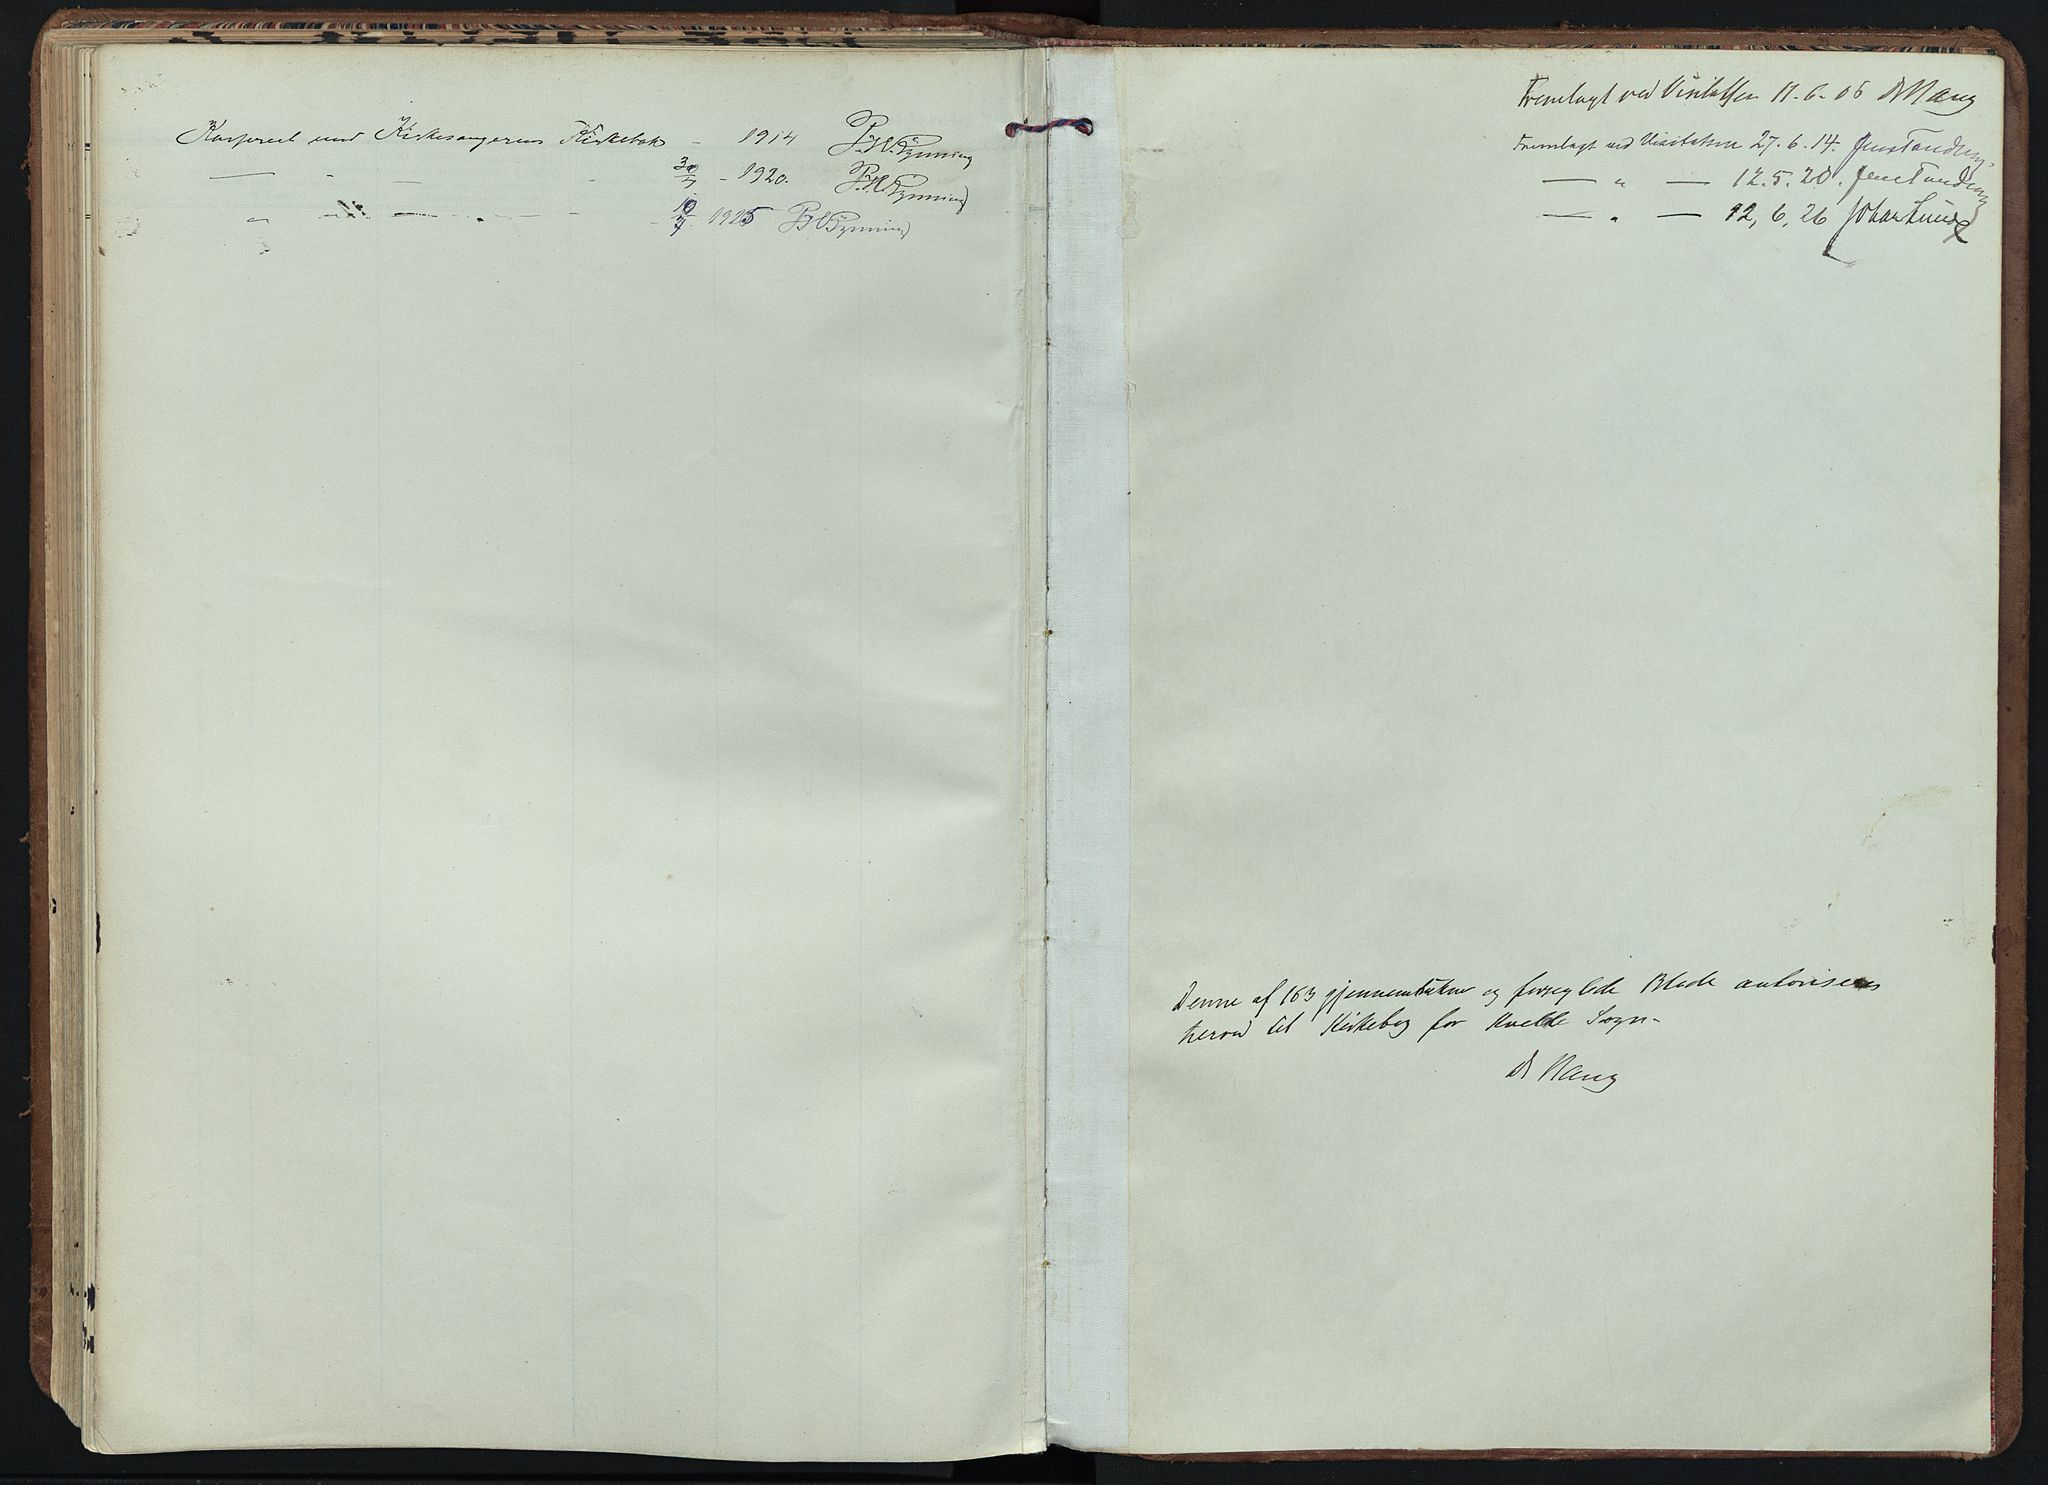 Konfereret med Kirkesangerens Kirkebok - 1914 P.W. Pynning
— " — - 30/7 - 1920. P.W. Pynning
" " — " - 10/7. 1925 P.W. Pynning
Fremlagt ved Visitatsen 11-6-06 Dr Haug
Fremlagt ved Visitatsen 27.6.14. Jens Tandberg.
— " — 12.5.20. Jens Tandberg
— " — 12,6,26 Johan Lunde
Denne af 163 gjennemtrukne og forseglede Blade autoriseres
herved til Kirkebog for Kvelde Sogn-
Dr Haug